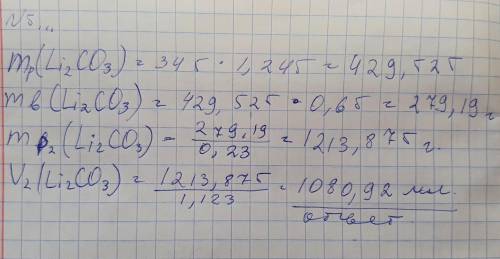 №5...
mр(Li₂CO₃) = 345 · 1,245 = 429,525
mв(Li₂CO₃) = 429,525 · 0,65 = 279,19 г
mр₂(Li₂CO₃) = 279,19 / 0,23 = 1213,875 г.
V₂(Li₂CO₃) = 1213,875 / 1,123 = 1080,92 мл.
ответ